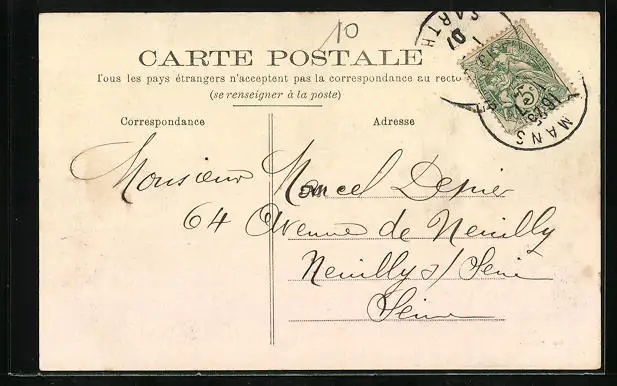 10
CARTE POSTALE
Tous les pays étrangers n'acceptent pas la correspondance au recto
(se renseigner à la poste)
Correspondance
Adresse
MANS
SARTH
Monsieur Marcel
64 Avenue de Neuilly
Neuilly s/ Seine
Seine